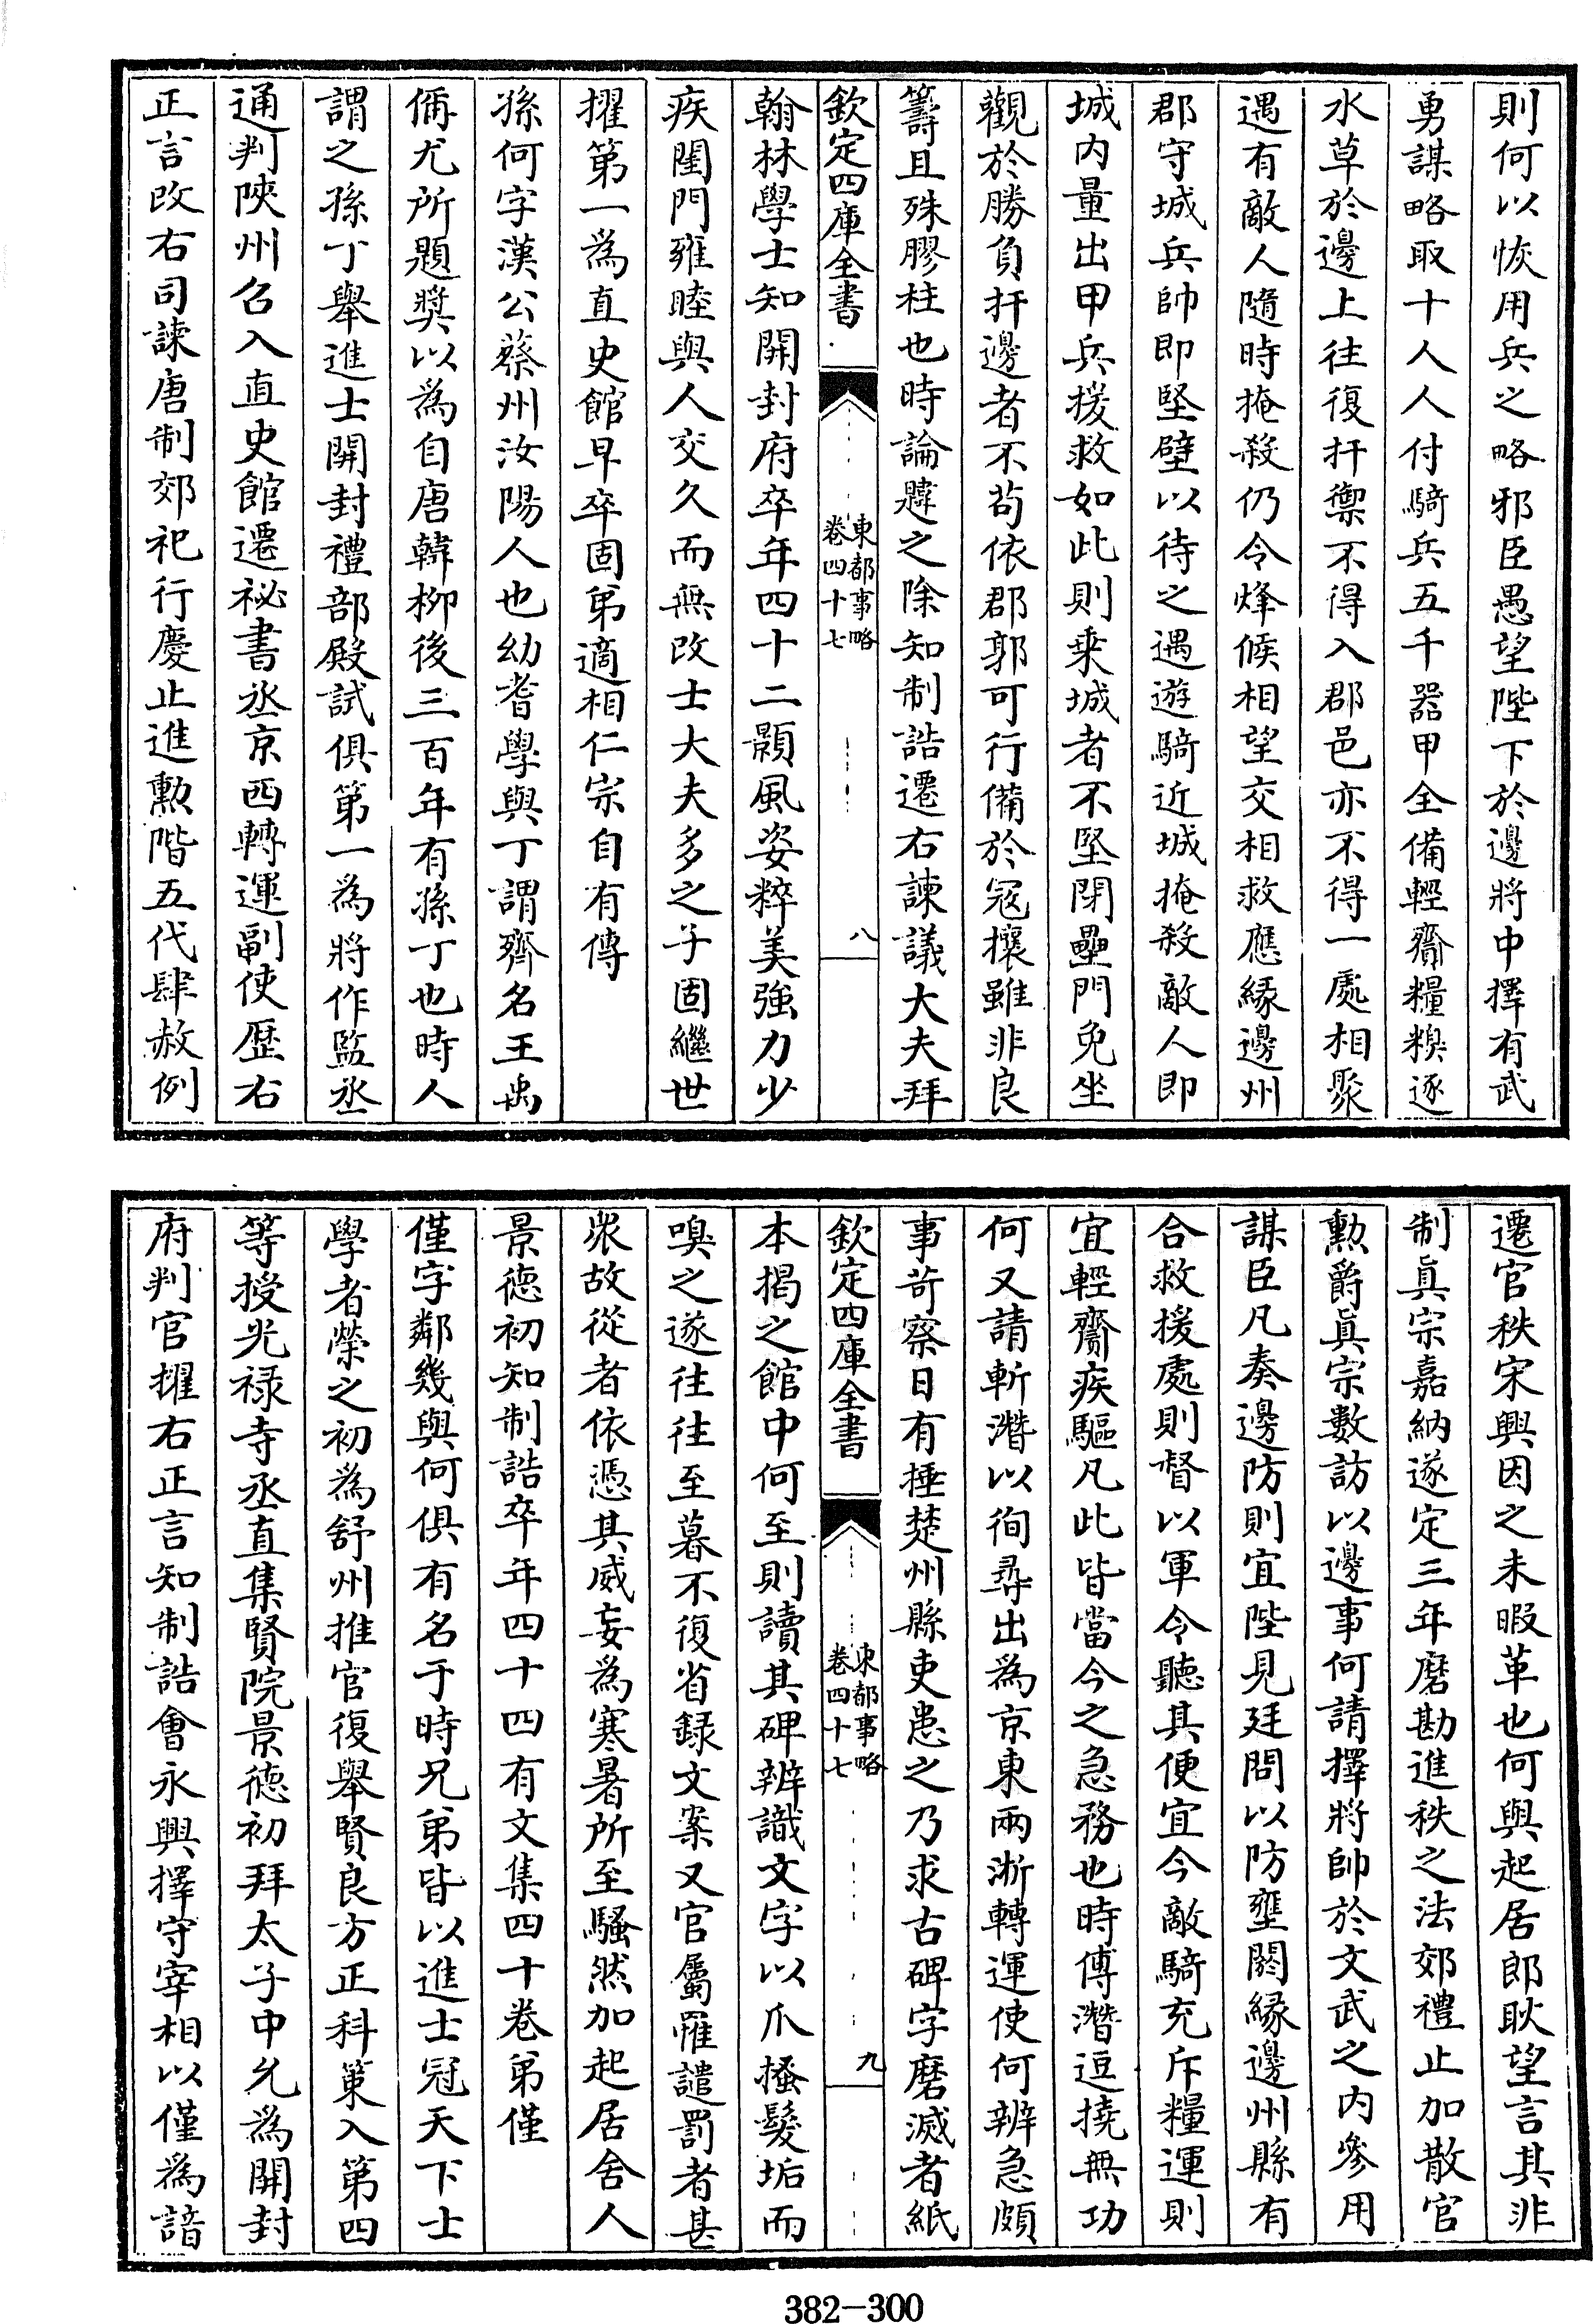 則何以恢用兵之略邪臣愚望陛下於邊將中擇有武
勇謀略取十人人付騎兵五千器甲全備輕齎糧糗逐
水草於邊上往復扞禦不得入郡邑亦不得一處相聚
遇有敵人隨時掩殺仍令烽候相望交相救應縁邊州
郡守城兵帥即堅壁以待之遇遊騎近城掩殺敵人即
城内量出甲兵援救如此則乗城者不堅閉壘門免坐
觀於勝負扞邊者不茍依郡郭可行備於冦攘雖非良
籌且殊膠柱也時論韙之除知制誥遷右諫議大夫拜
欽定四庫全書
東都事略
卷四十七
八
翰林學士知開封府卒年四十二顥風姿粹美強力少
疾閨門雍睦與人交久而無改士大夫多之子固繼世
擢第一為直史館早卒固弟適相仁宗自有傳
孫何字漢公蔡州汝陽人也幼耆學與丁謂齊名王禹
偁尤所題奬以為自唐韓柳後三百年有孫丁也時人
謂之孫丁舉進士開封禮部殿試俱第一為將作監丞
通判陜州召入直史館遷祕書丞京西轉運副使歴右
正言改右司諫唐制郊祀行慶止進勲階五代肆赦例
遷官秩宋興因之未暇革也何與起居郎耿望言其非
制真宗嘉納遂定三年磨勘進秩之法郊禮止加散官
勲爵真宗數訪以邊事何請擇將帥於文武之内參用
謀臣凡奏邊防則宜陛見廷問以防壅閼縁邊州縣有
合救援處則督以軍令聽其便宜今敵騎充斥糧運則
宜輕齎疾驅凡此皆當今之急務也時傅潛逗撓無功
何又請斬潛以徇尋出為京東兩浙轉運使何辨急頗
事苛察日有捶楚州縣吏患之乃求古碑字磨滅者紙
欽定四庫全書
東都事略
卷四十七
九
本掲之館中何至則讀其碑辨識文字以爪搔髮垢而
嗅之遂往往至暮不復省録文案又官屬罹譴罰者甚
衆故從者依憑其威妄為寒暑所至騷然加起居舍人
景徳初知制誥卒年四十四有文集四十卷弟僅
僅字鄰幾與何俱有名于時兄弟皆以進士冠天下士
學者榮之初為舒州推官復舉賢良方正科第入第四
等授光禄寺丞直集賢院景徳初拜太子中允為開封
府判官擢右正言知制誥會永興擇守宰相以僅為諳
382-300